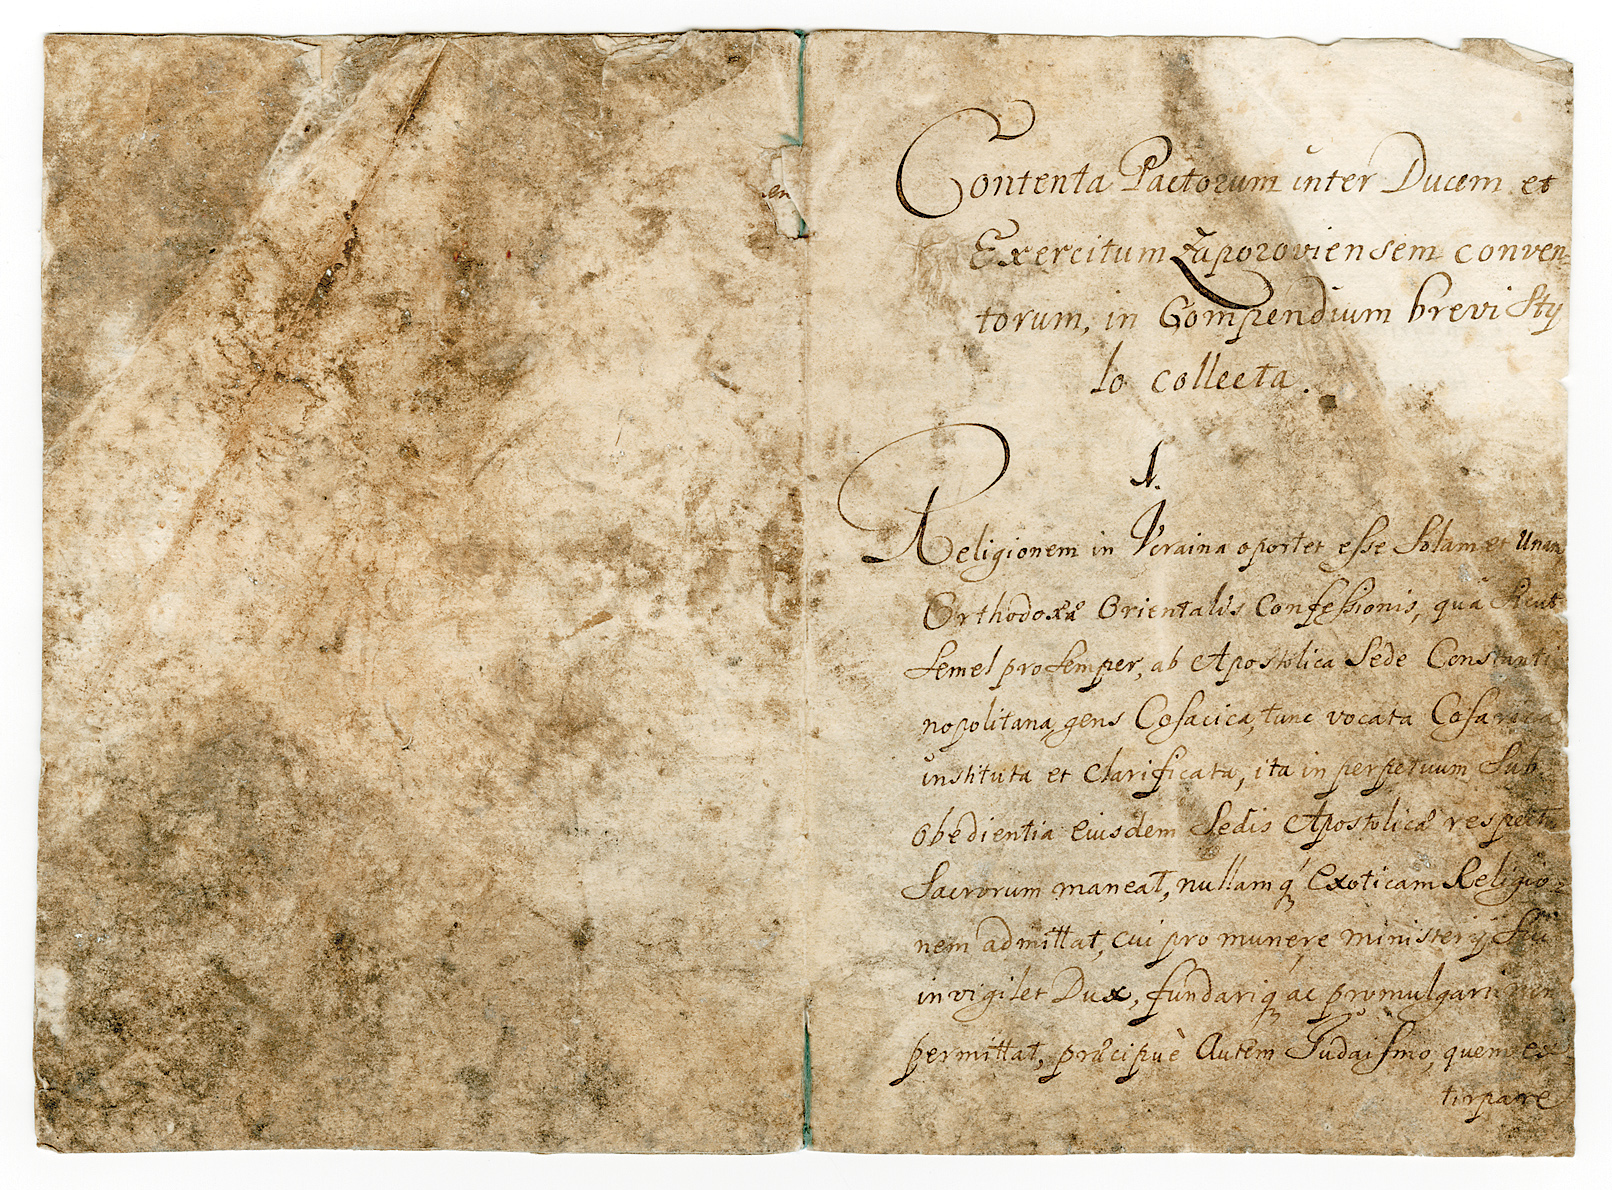 en
Contenta Pactorum inter Ducem et
Exercitum Zaporoviensem conven=
torum, in Compendium brevi Sty
lo collecta.
1.
Religionem in Vcraina oportet esse Solam et Unam
Orthodoxæ Orientalis Confessionis, quâ Sicut
Semel pro Semper, ab Apostolica Sede Constanti
nopolitana gens Cosacica, tunc vocata
instituta et Clarificata, ita in perpetuum Sub
Obedientia Eiusdem Sedis Apostolicæ respectu
Sacrorum maneat, nullamq́ Exoticam Religio=
nem admittat, cui pro munere ministerij Sui
invigilet Dux, fundariq́ ac promulgari non
permittat, præcipuè Autem Judaismo, quem ex=
tirpare